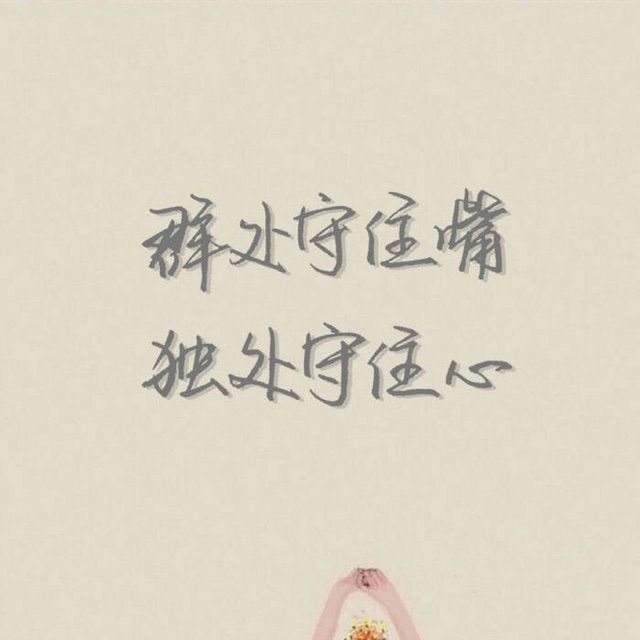 群处守住嘴
独处守住心